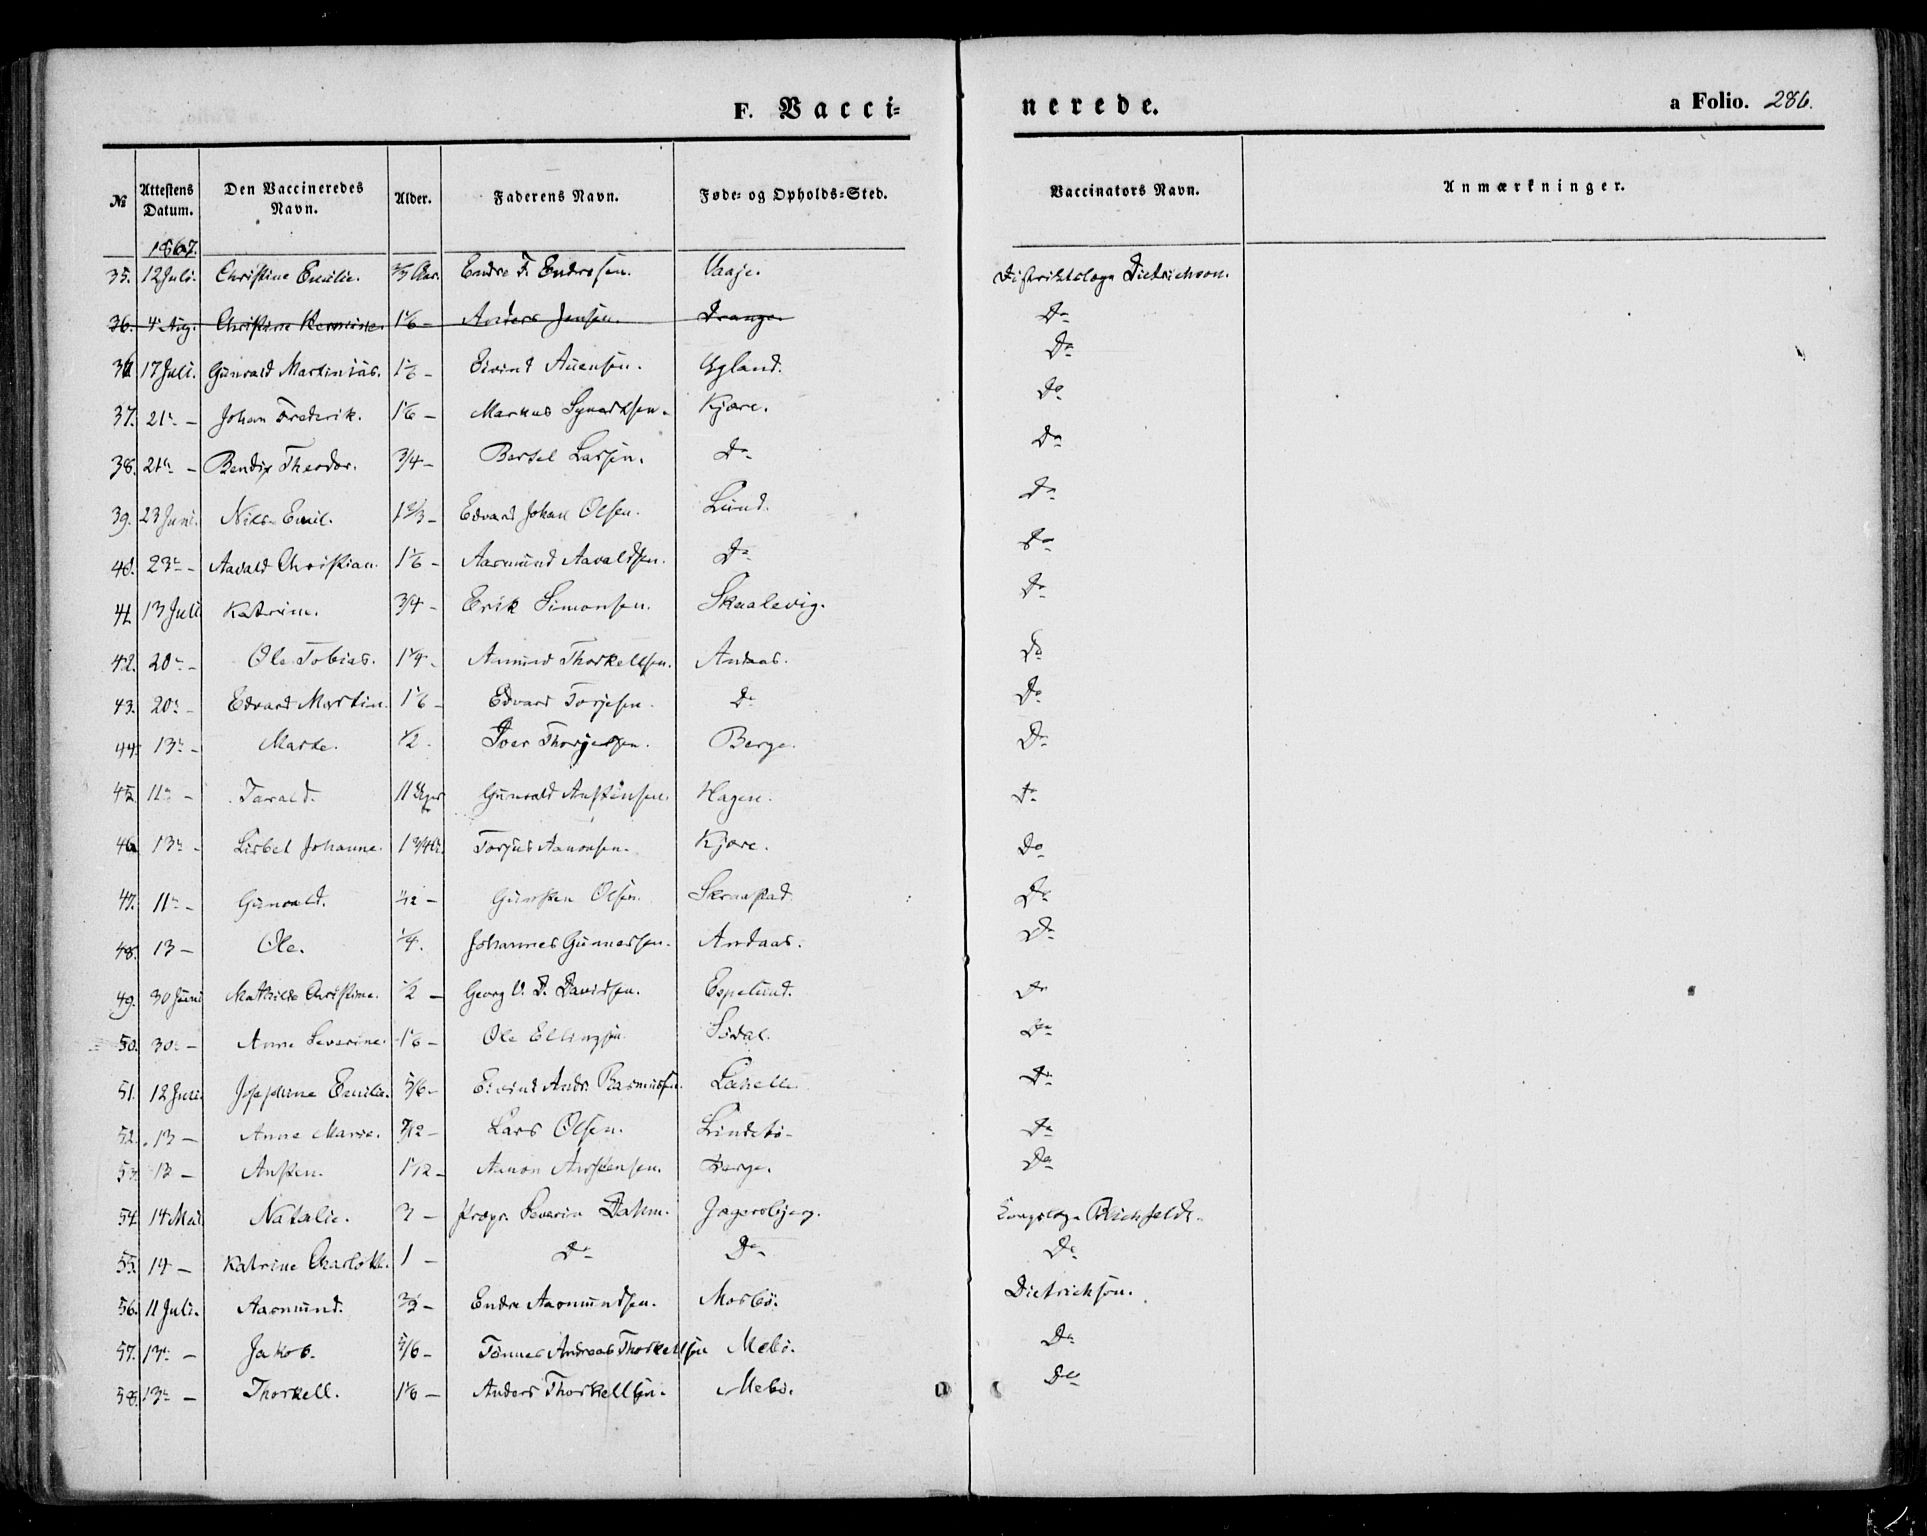 F. Vacci-
nerede.
a Folio. 286.
№ Attestens Datum. Den Vaccineredes Navn. Alder. Faderens Navn. Føde- og Opholds-Sted. Vaccinators Navn. Anmærkninger.
1867.
35. 12 Juli. Christine Emilie. 2/3 Aar. Endre F. Endresen. Vaaje. Distriktslæge Dietrichson.
36. 4 Aug. Christine 1 1/6 - Anders Jensen. Drange. Do
36 17 Juli. Gunvald Martinius. 1/6 - Eivind Auensen. Ygland. Do
37. 21" - Johan Frederik. 1 1/6 - Markus Kjære. Do
38. 21" - Bendix Theodor. 3/4 - Bertel Larsen. Do Do
39. 23 Juni. Nils Emil. 1 2/3 - Edvard Johan Olsen. Lund. Do
40. 23" - Aavald Christian. 1 1/6 - Aasmund Aavaldsen. Do Do
41. 13 Juli Katrine. 3/4 - Erik Simonsen. Skaalevig. Do
42. 20" - Ole Tobias. 1 1/4 - Anund Thorkellsen. Andaas. Do
43. 20" - Edvard Martin. 1 1/6 - Edvard Torjesen. Do Do
44. 13" - Marte. 1/2. Iver Thorjussen. Berge. Do
45. 11" - Tarald. 11 Gunvald Anstensen. Hagen. Do
46. 13" - Lisbet Johanne. 1 3/4 Torjus Aanonsen. Kjære. Do
47. 11" - Gunvald. 1/12 - Gunsten Olsen. Skraastad. Do
48. 13 - Ole. 1/4. Johannes Gunnersen. Andaas. Do
49. 30 Juni Mathilde Christine. 1/2 - Georg V. D. Davidsen. Espelund. Do
50. 30" - Anne Severine. 1 1/6 - Ole Ellingsen. Sødal. Do
51. 12 Juli. Josephine Emilie. 5/6 - Eivind Andr. Rasmussen. Do
52. 13 - Anne Marie. 7/12 - Lars Olsen. Lindebø - Do
53. 13 - Ansten. 1 1/12 - Aanon Anstensen. Berge. Do
54. 14 Mai Natalie. 3 - Propr. Severin Dahm. Jægersbjerg. Corpslæge Blichfeldt.
55. 14 - Katrine Charlotte. 1 - Do Do Do
56. 11 Juli. Aasmund. 2/3 - Endre Aasmundsen. Mosbø. Dietrichson.
57. 13" - Jakob. 5/6 - Tønnes Andreas Thorkellsen Mebø. Do
58. 13" - Thorkell. 1 1/6 - Anders Thorkellsen. Mebø. Do